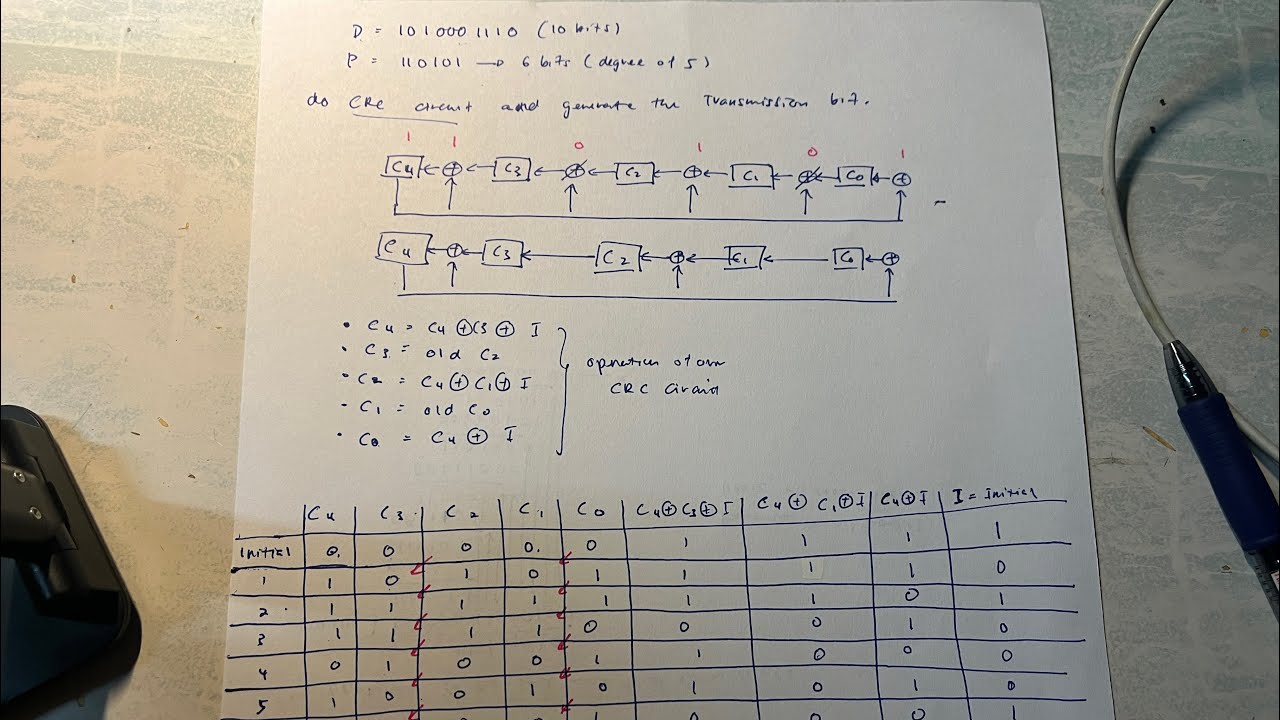 D = 1010001110 (10 bits)
P = 110101 → 6 bits (degree of 5)
do CRC circuit and generate the Transmission bit.
1 1 0 1 0 1
C4 ← ⊕ ← C3 ← ⊕ ← C2 ← ⊕ ← C1 ← ⊕ ← C0 ← ⊕
C4 ← ⊕ ← C3 ← C2 ← ⊕ ← C1 ← C0 ← ⊕
• C4 = C4 ⊕ C3 ⊕ I
• C3 = old C2
• C2 = C4 ⊕ C1 ⊕ I
• C1 = old C0
• C0 = C4 ⊕ I
operation of our
CRC Circuit
C4 C3 C2 C1 C0 C4⊕C3⊕I C4⊕C1⊕I C4⊕I I = Initial
Initial 0 0 0 0 0 1 1 1 1
1 1 0 1 0 1 1 1 1 0
2 1 1 1 1 1 1 1 0 1
3 1 1 1 1 0 0 0 1 0
4 0 1 0 0 1 1 0 0 0
5 1 0 0 1 0 1 0 1 0
0 1 0 0 0 1